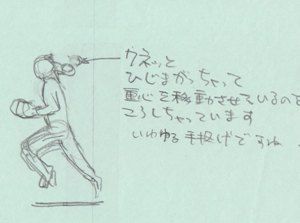 クネッと
ひじまがっちゃって
重心を移動させているのを
ころしちゃっています
いわゆる手投げですね